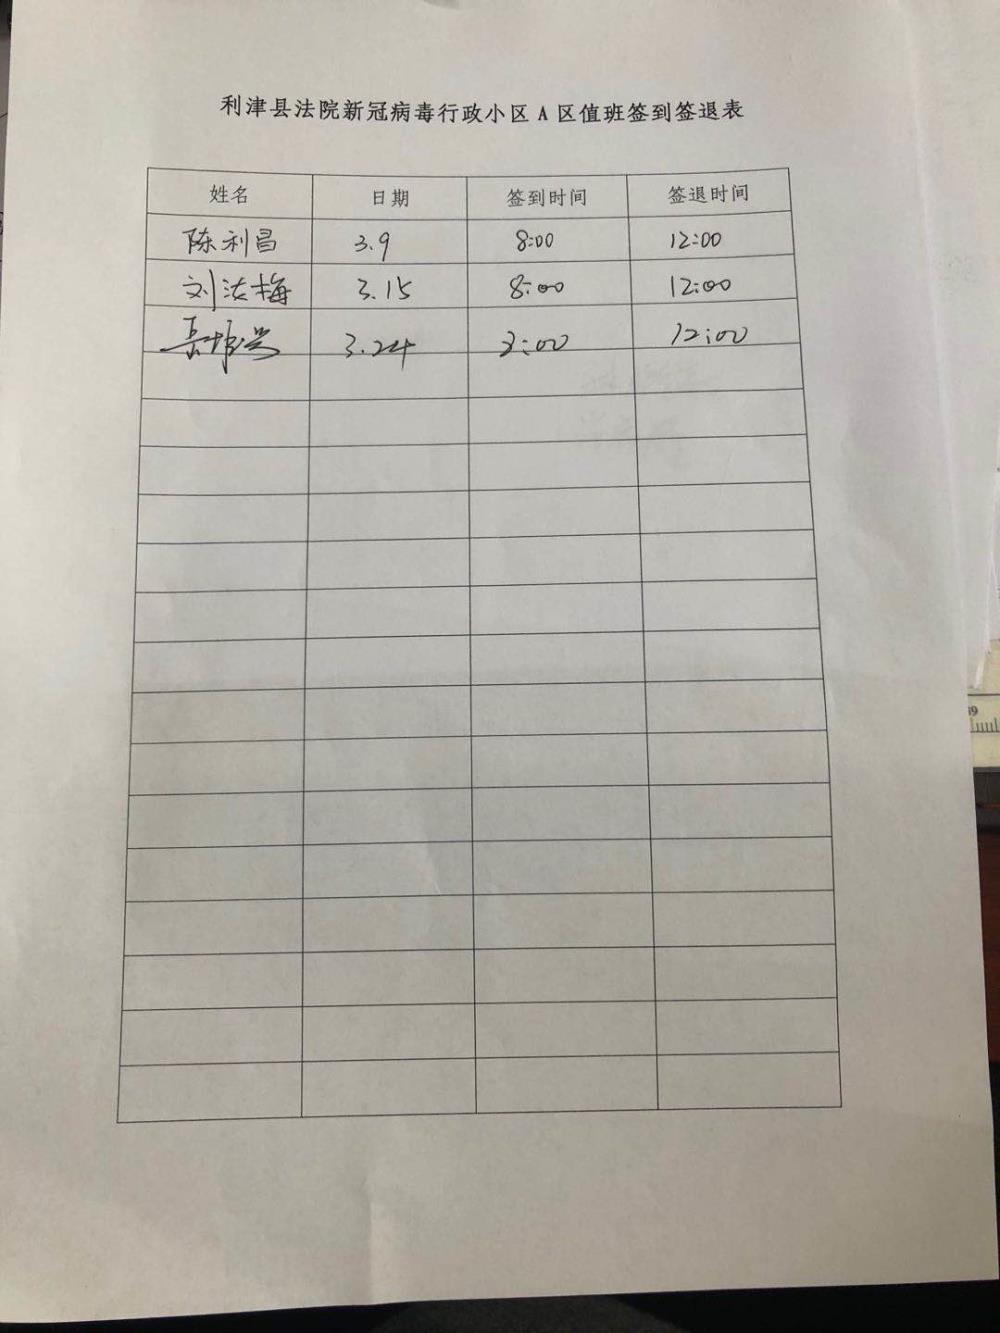 利津县法院新冠病毒行政小区 A 区值班签到签退表
姓名 日期 签到时间 签退时间
陈利昌 3.9 8:00 12:00
刘法梅 3.15 8:00 12:00
3.24 3:00 12:00
39